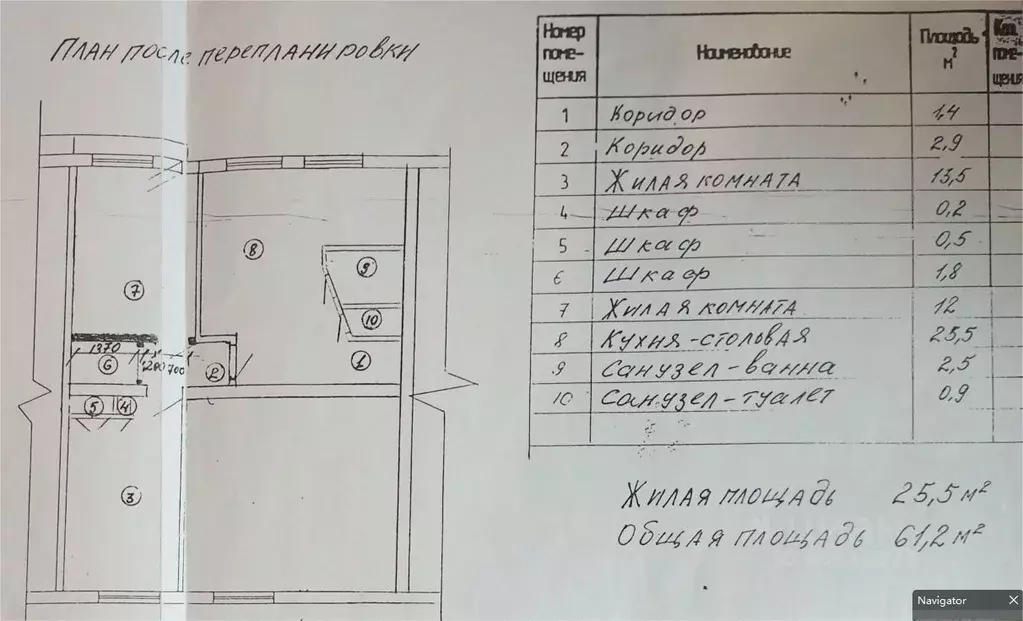 План после перепланировки
8
9
7
10
1
1370
6
1200 700
2
5
4
3
Номер поме- щения Наименование Площадь м² Кат. поме- щения
1 Коридор 1,4
2 Коридор 2,9
3 Жилая комната 13,5
4 Шкаф 0,2
5 Шкаф 0,5
6 Шкаф 1,8
7 Жилая комната 12
8 Кухня-столовая 25,5
9 Санузел-ванна 2,5
10 Санузел-туалет 0,9
Жилая площадь 25,5 м²
Общая площадь 61,2 м²
Navigator